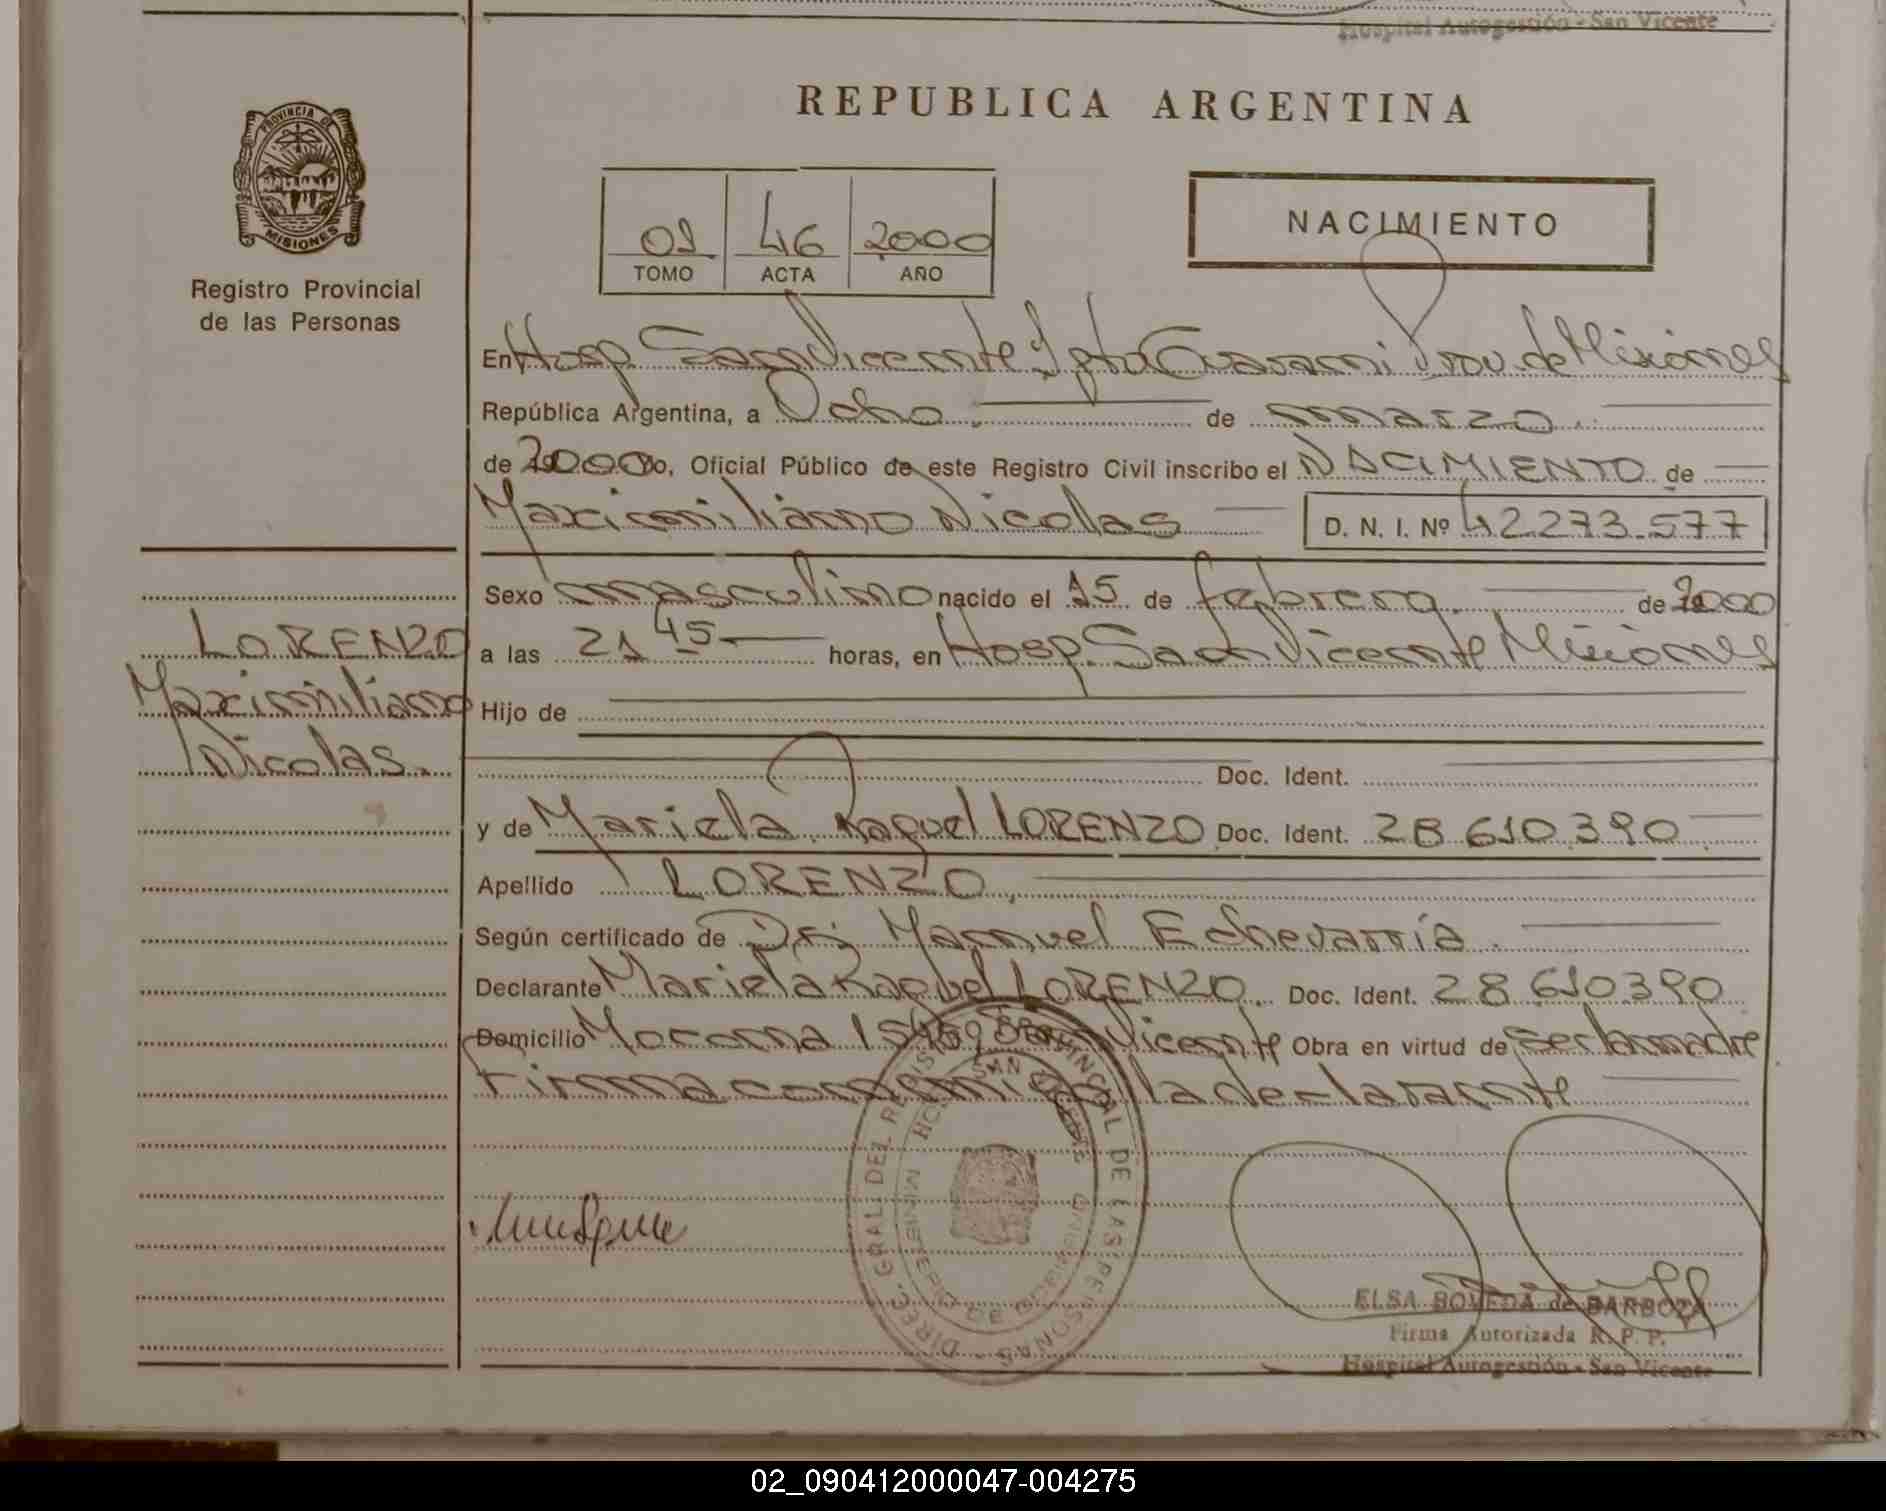 Hospital Autogestión - San Vicente
REPUBLICA ARGENTINA
PROVINCIA DE
MISIONES
Registro Provincial
de las Personas
01 46 2000
TOMO ACTA AÑO
NACIMIENTO
En Hosp. San Vicente Dpto Guarani Prov. de Misiones
República Argentina, a Ocho de marzo
de 2000 yo, Oficial Público de este Registro Civil inscribo el NACIMIENTO de
Maximiliano Nicolas D. N. I. Nº 42273.577
Sexo masculino nacido el 15 de febrero. de 2000
LORENZO
Maximiliano
Nicolas.
a las 21 45 horas, en Hosp. San Vicente Misiones
Hijo de
Doc. Ident.
y de Mariela Raquel LORENZO Doc. Ident. 28 610.390
Apellido LORENZO
Según certificado de Dr: Manuel Echevarría
Declarante Mariela Raquel LORENZO. Doc. Ident. 28 610390
Domicilio Mocona San Vicente Obra en virtud de ser la madre
Firma conmigo la declarante
DIREC. GRAL. DEL REGISTRO PROVINCIAL DE LAS PERSONAS
MINISTERIO DE GOBIERNO
SAN VICENTE
ELSA BOVEDA de BARBOZA
Firma Autorizada R. P. P.
Hospital Autogestión - San Vicente
02_090412000047-004275